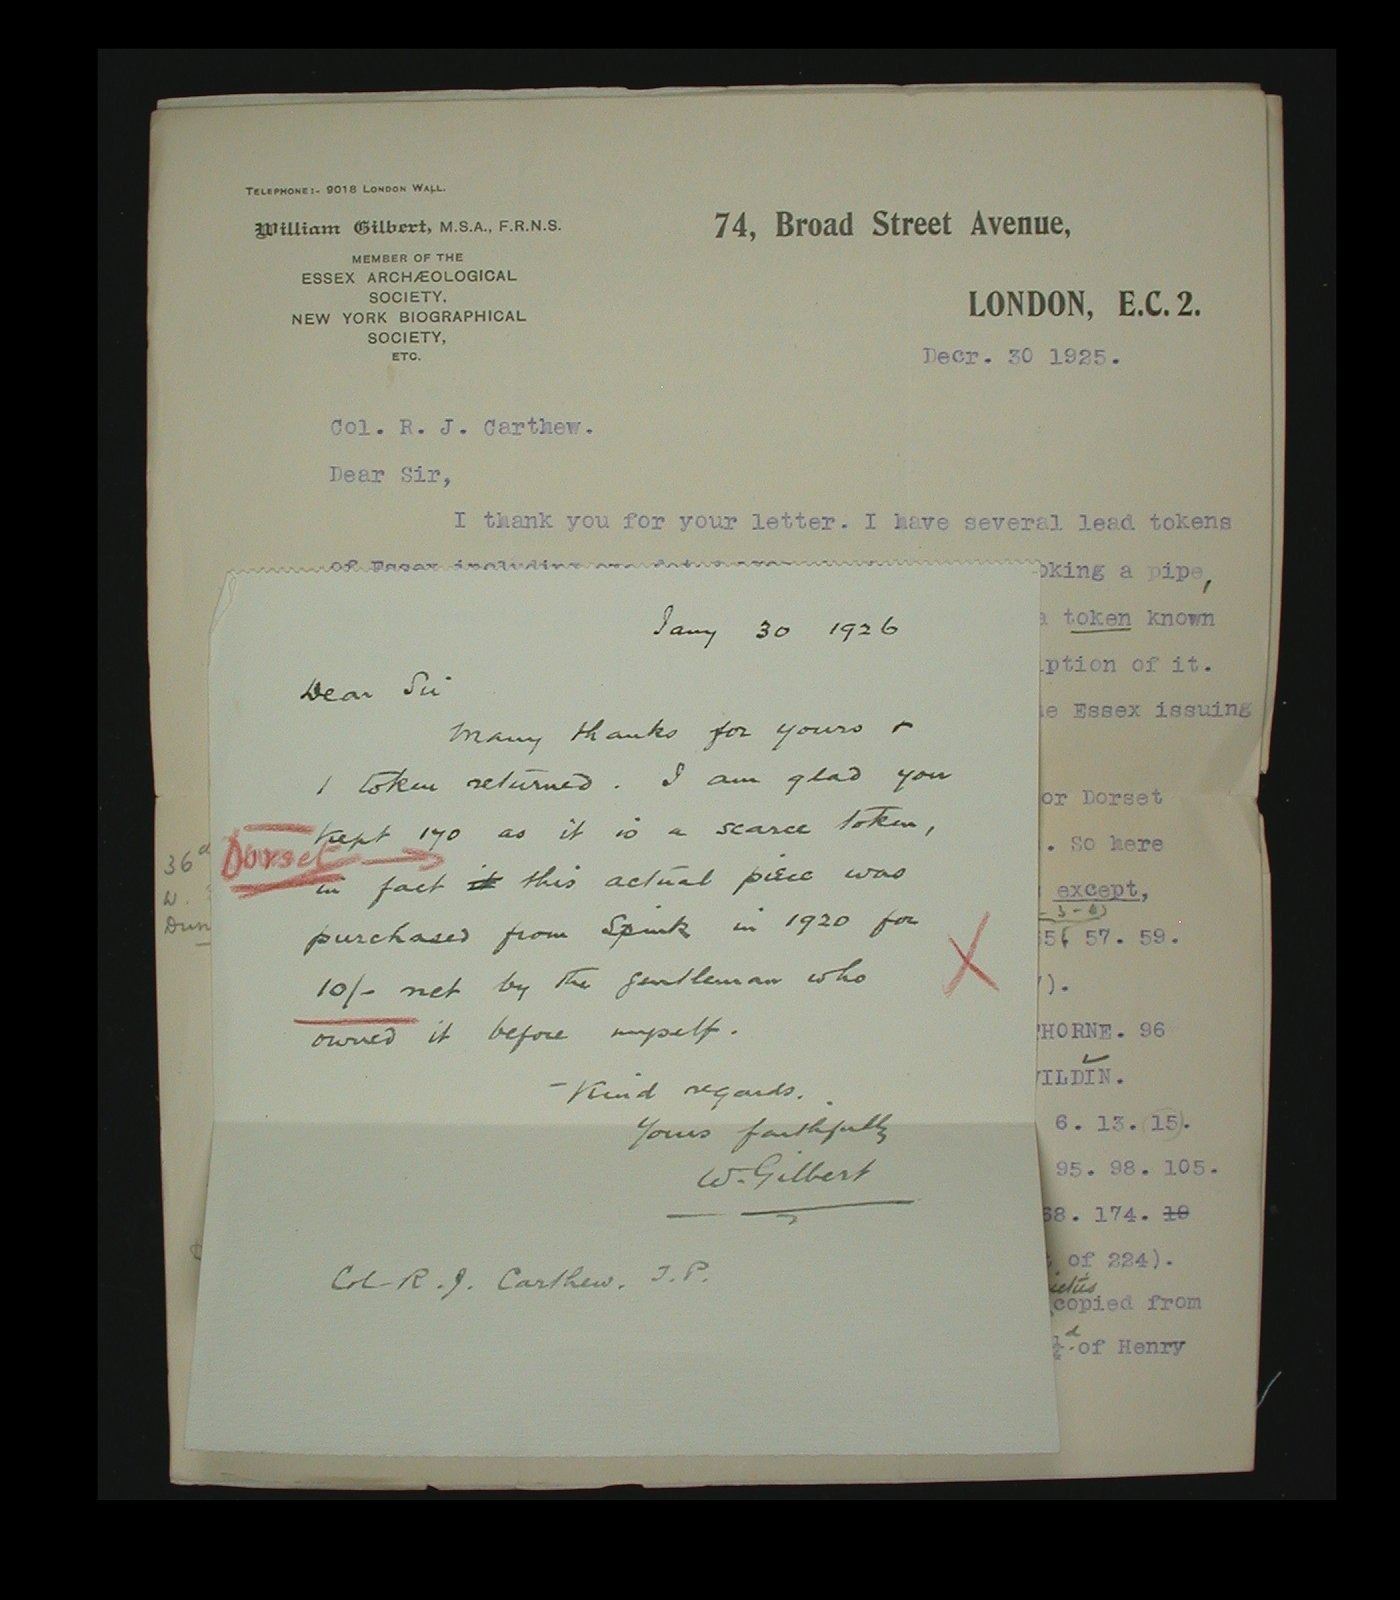 TELEPHONE:- 9018 LONDON WALL.
William Gilbert, M.S.A., F.R.N.S.
MEMBER OF THE
ESSEX ARCHÆOLOGICAL
SOCIETY,
NEW YORK BIOGRAPHICAL
SOCIETY,
ETC.
74, Broad Street Avenue,
LONDON, E.C. 2.
Decr. 30 1925.
Col. R. J. Carthew.
Dear Sir,
I thank you for your letter. I have several lead tokens
of Essex including
oking a pipe,
a token known
iption of it.
e Essex issuing
or Dorset
. So here
except,
57. 59.
).
THORNE. 96
WILDIN.
6. 13. 15.
95. 98. 105.
68. 174. 18
of 224).
copied from
½d of Henry
36d
Dun
Jany 30 1926
Dear Sir
Many thanks for yours +
1 token returned. I am glad you
kept 170 as it is a scarce token,
Dorset
in fact it this actual piece was
purchased from Spink in 1920 for
10/- net by the gentleman who
X
owned it before myself.
Kind regards.
Yours faithfully
W. Gilbert
Col-R.J. Carthew. J.P.